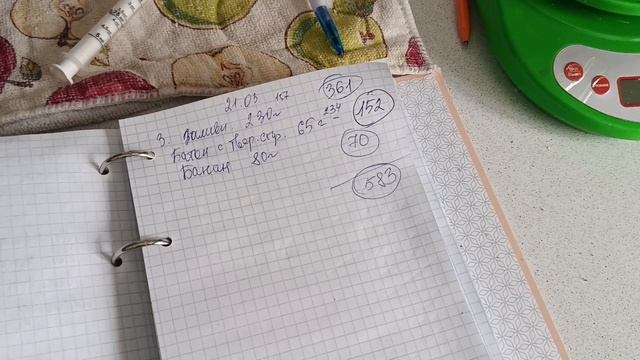 21.03 157 361
3. Заливн. 230г 234 152
Батон с твор. сыр. 65г 70
Банан 80г
583